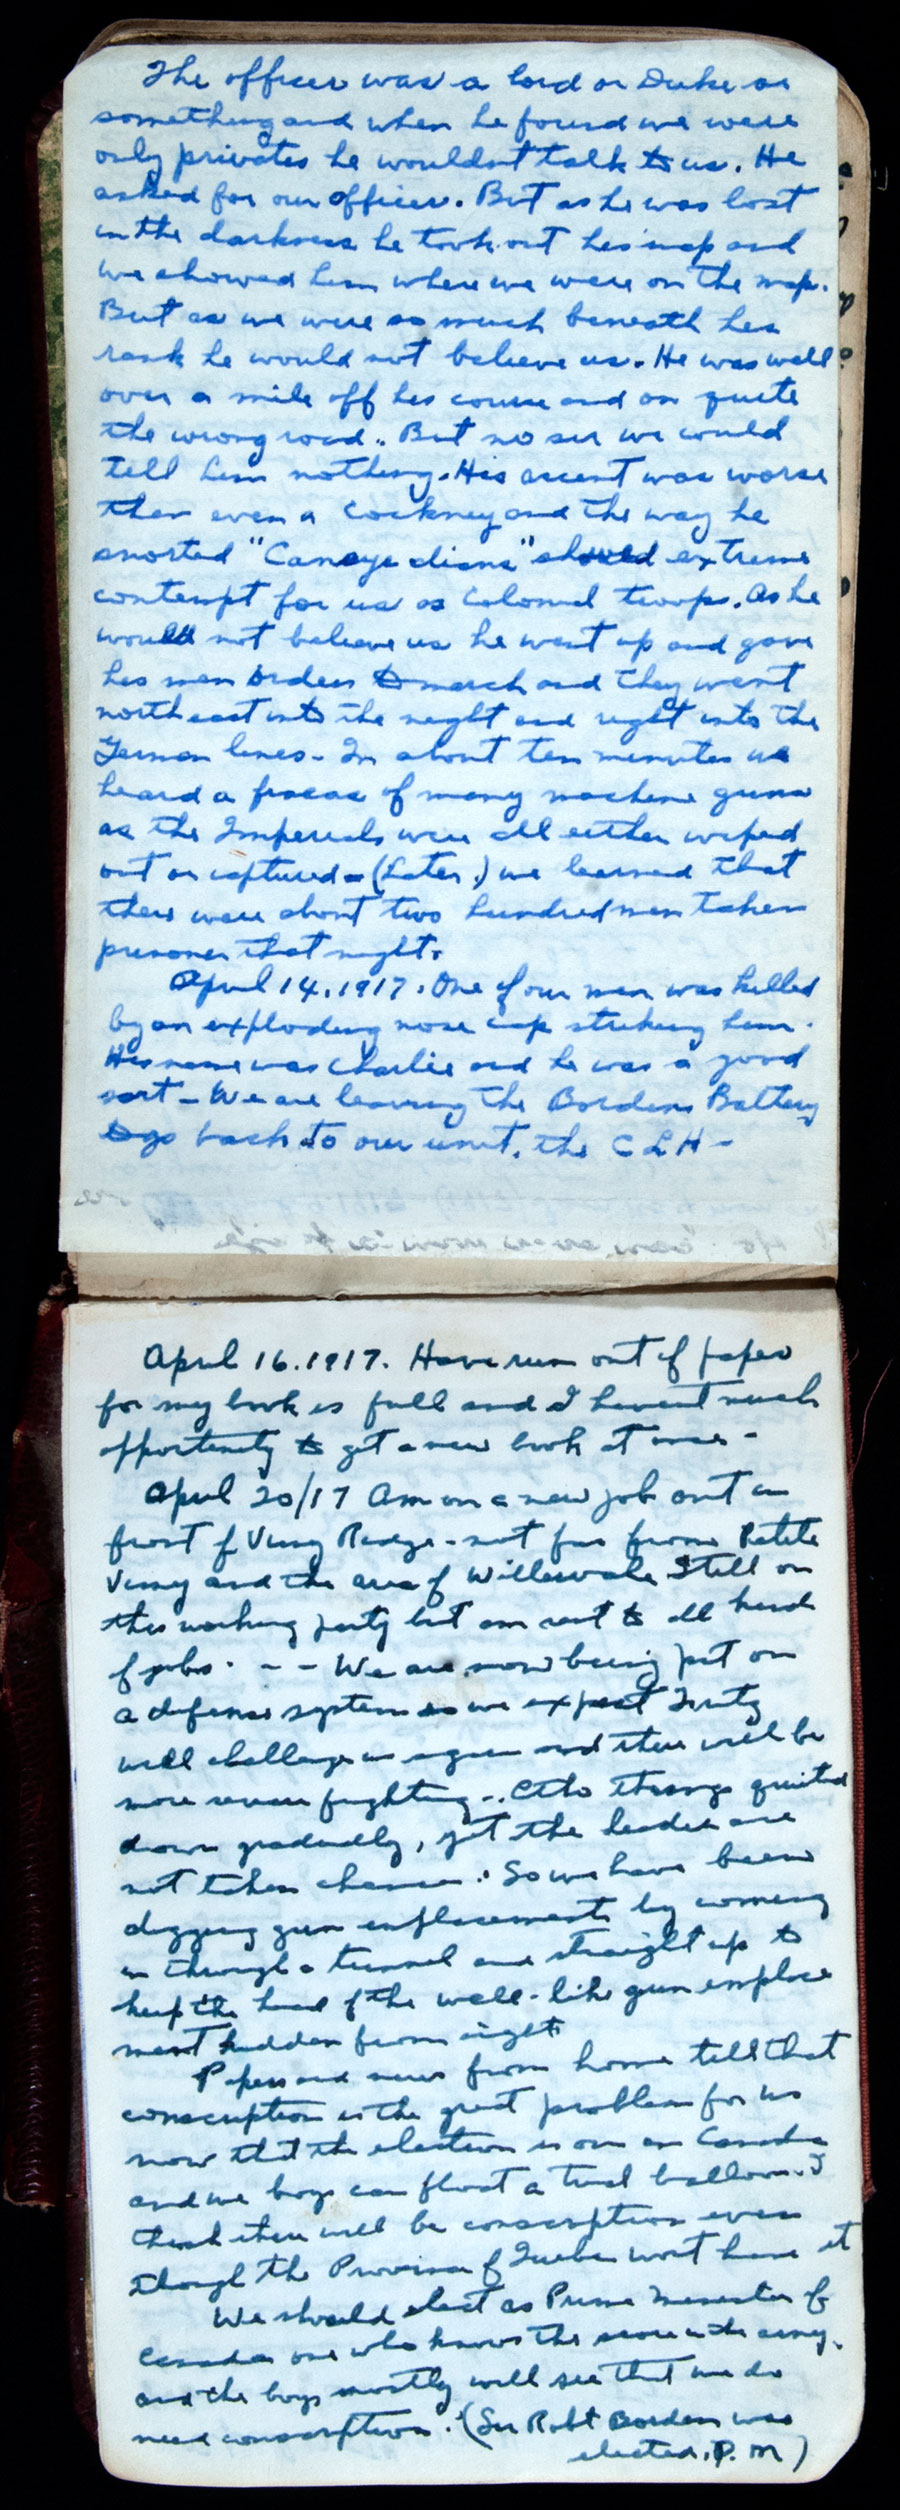 The officer was a lord or Duke or
something and when he found we were
only privates he wouldnt talk to us. He
asked for our officer. But as he was lost
in the darkness he took out his map and
we showed him where we were on the map.
But as we were so much beneath his
rank he would not believe us. He was well
over a mile off his course and on quite
the wrong road. But no sir we could
tell him nothing. His accent was worse
than even a Cockney and the way he
snorted "Canayedians" showed extreme
contempt for us as Colonial troops. As he
would not believe us he went up and gave
his men orders to march and they went
north east into the night and right into the
German lines - In about ten minutes we
heard a fracas of many machine guns
as the Imperials were all either wiped
out or captured - (Later,) we learned that
there were about two hundred men taken
prisoner that night.
April 14, 1917. One of our men was killed
by an exploding nose cap striking him.
His name was Charlie and he was a good
sort - We are leaving the Bordens Battery
to go back to our unit, the C L H -
April 16. 1917. Have run out of paper
for my book is full and I havent much
opportunity to get a new book at once -
April 20/17 Am on a new job out in
front of Vimy Ridge - not far from Petite
Vimy and the area of Willerwale Still on
this working party but am sent to all kinds
of jobs. - - We are now being put on
a defense system as we expect Fritz
will challenge us again and there will be
more severe fighting -. Altho things quieted
down gradually, yet the leaders are
not taken chances. So we have been
digging gun emplacements by coming
in through a tunnel and straight up to
keep the head of the well-like gun emplace
ment hidden from sight
Papers and news from home tell that
conscription is the great problem for us
now that the election is on in Canada
and we boys can float a trial balloon. I
think there will be conscription even
though the Province of Quebec wont have it
We should elect as Prime Minester of
Canada one who knows the score in the army.
and the boys mostly will see that we do
need conscription. (Sir Robt Borden was
elected. P. M)